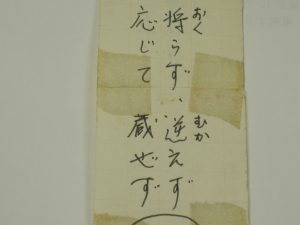 将らず、逆えず
応じて 蔵ぜず
おく
むか